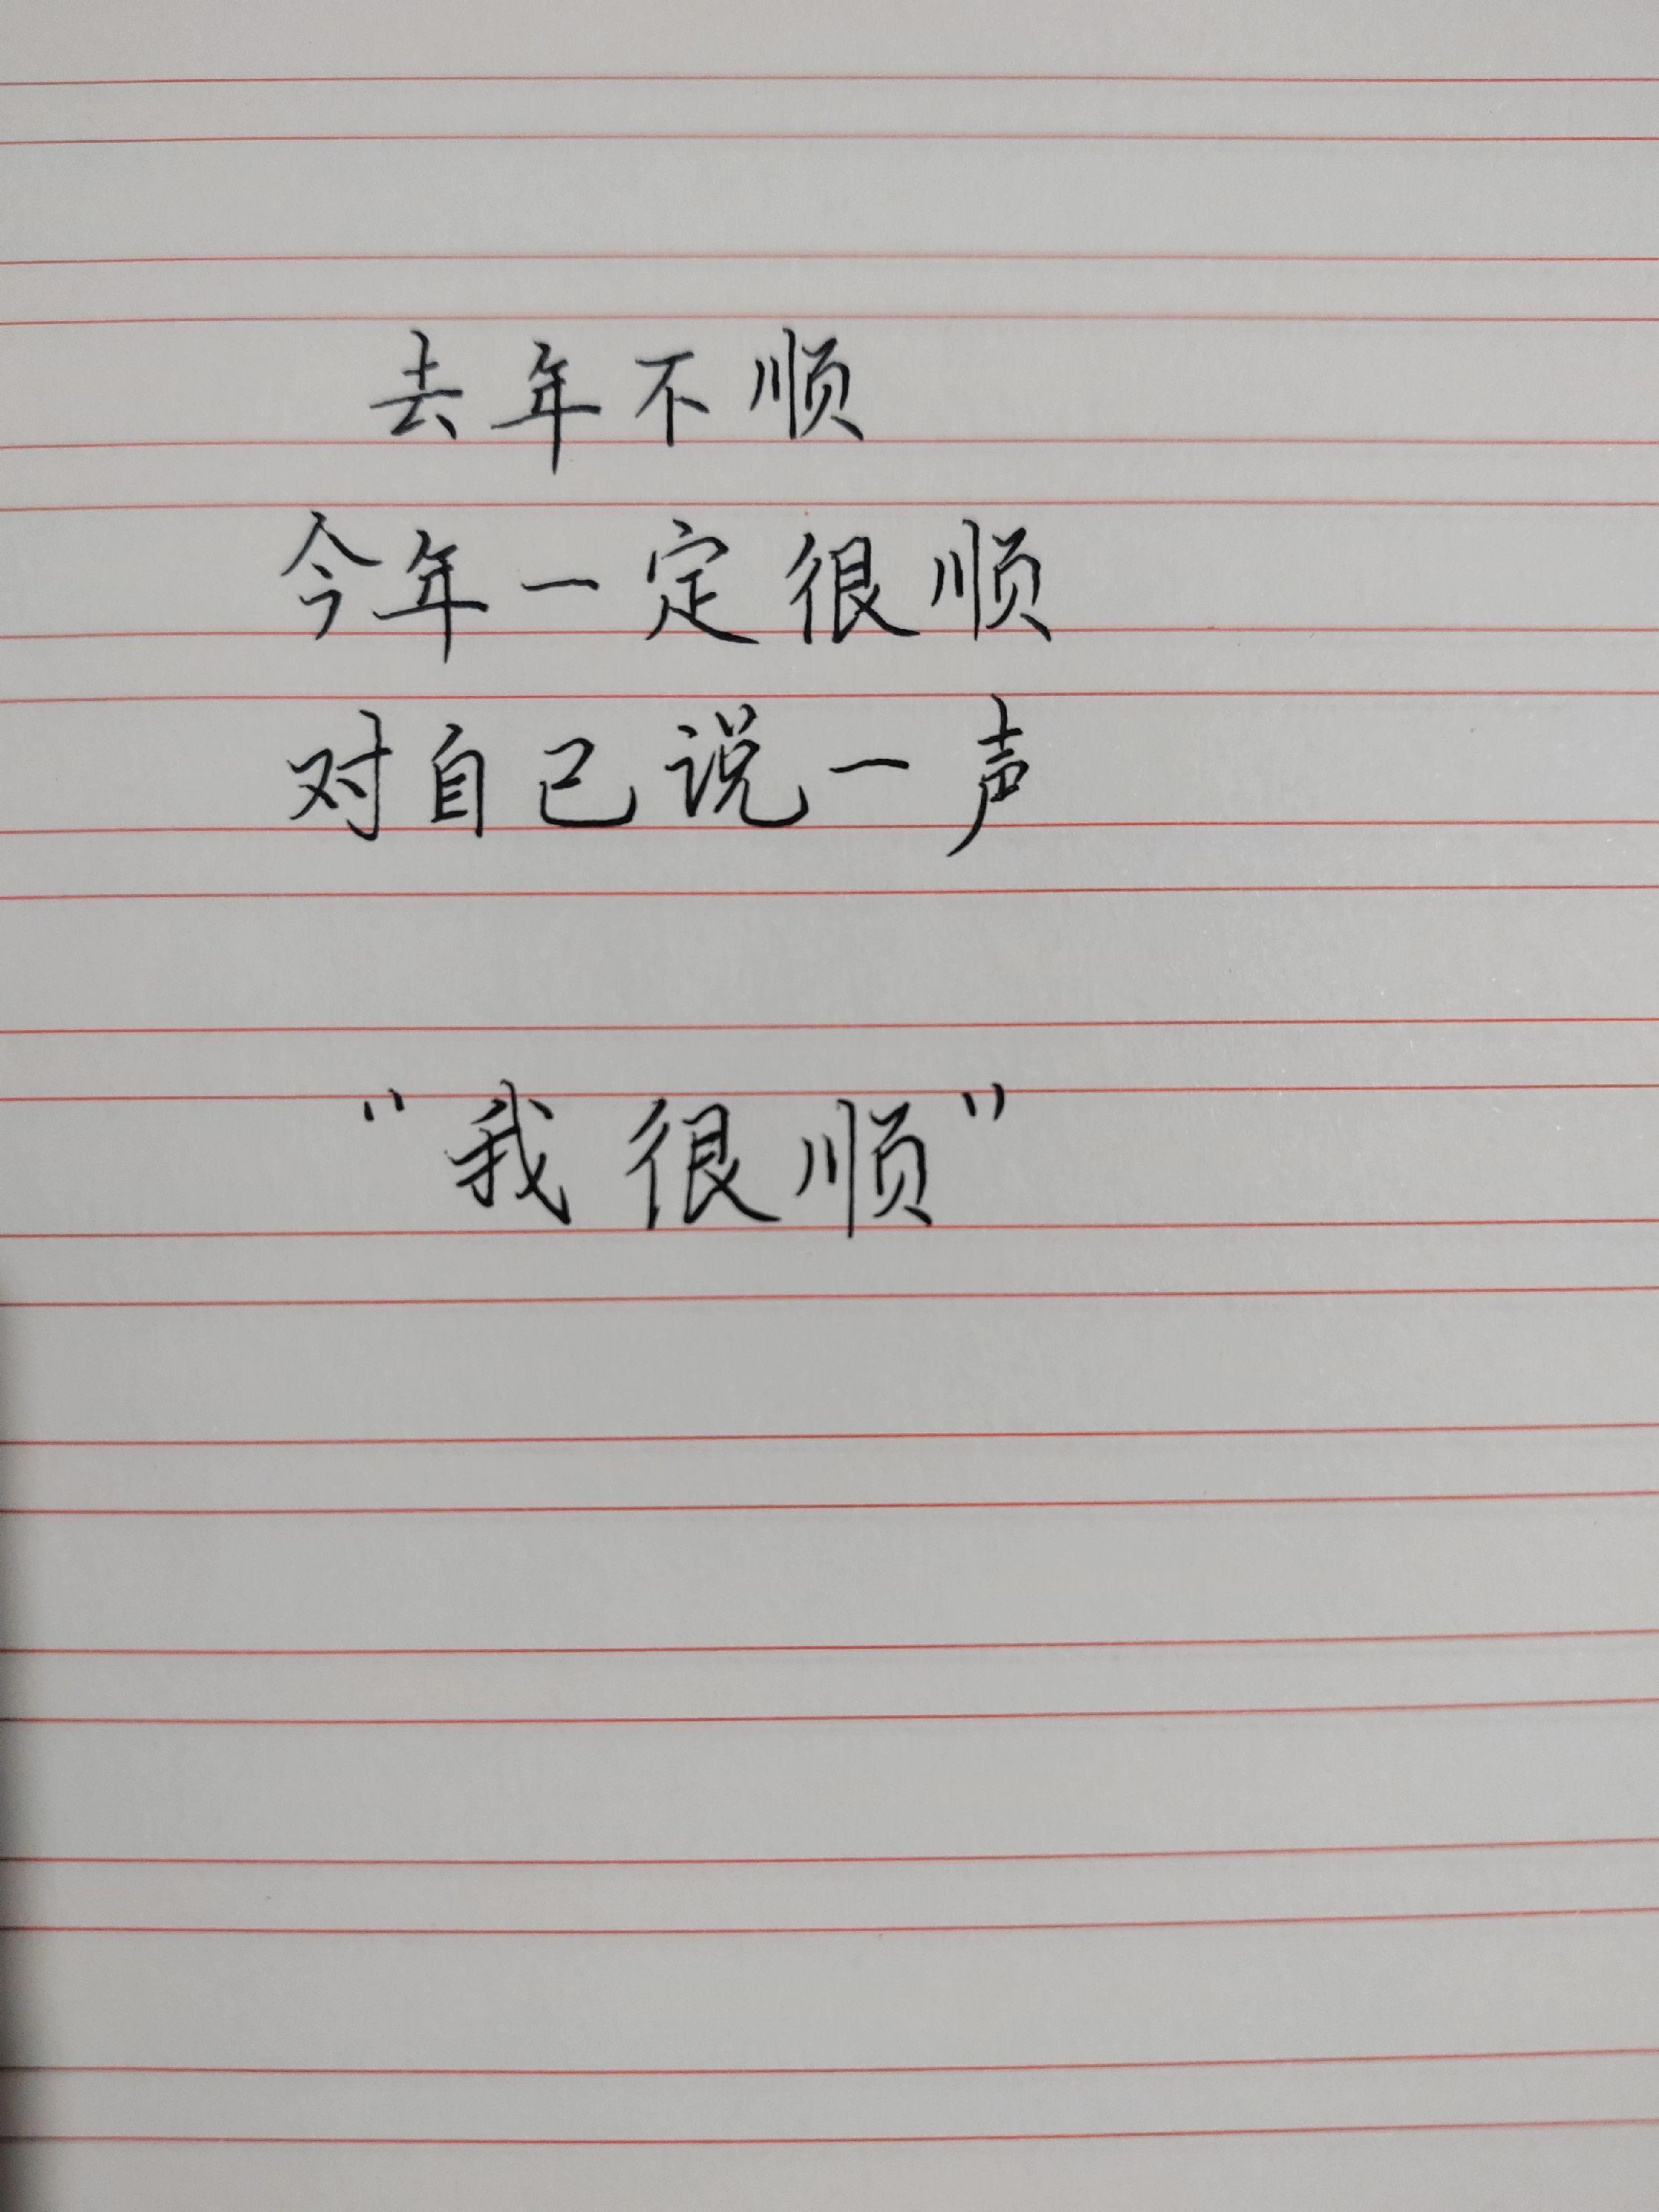 去年不顺
今年一定很顺
对自己说一声
“我很顺”